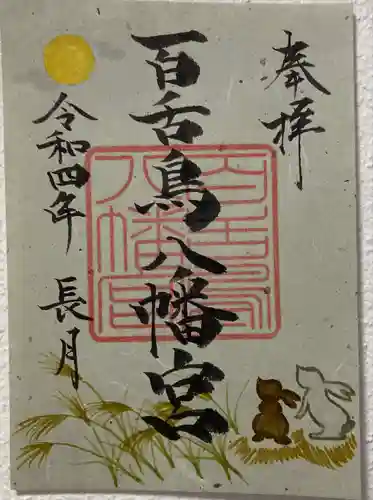 奉拝
百舌鳥八幡宮
百舌鳥八幡宮
令和四年 長月